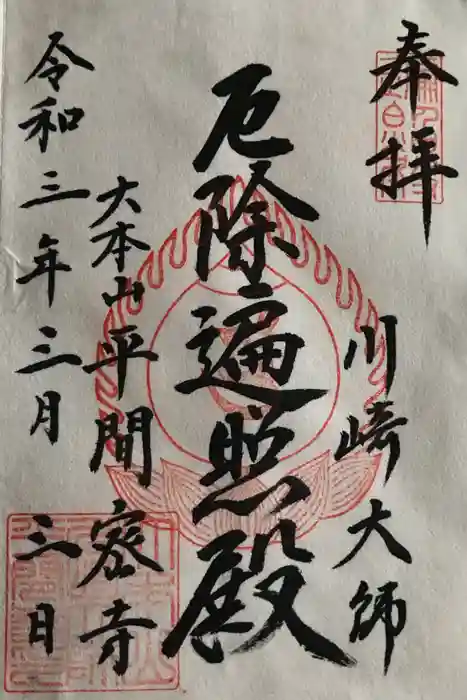 奉拝
川崎大師
厄除遍照殿
大本山平間密寺
令和三年三月三日